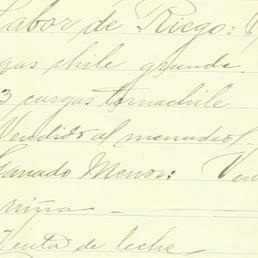 Labor de Riego:
gas chile grande.
3 cargas tornachile
Vendido al menudeo
Ganado Menor: Ven
Venta de leche